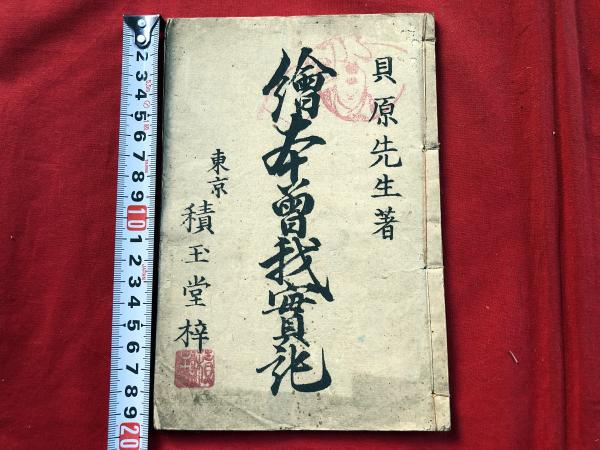 貝原先生著
繪本曽我實記
東京
積玉堂梓
1 2 3 4 5 6 7 8 9 10 1 2 3 4 5 6 7 8 9 20